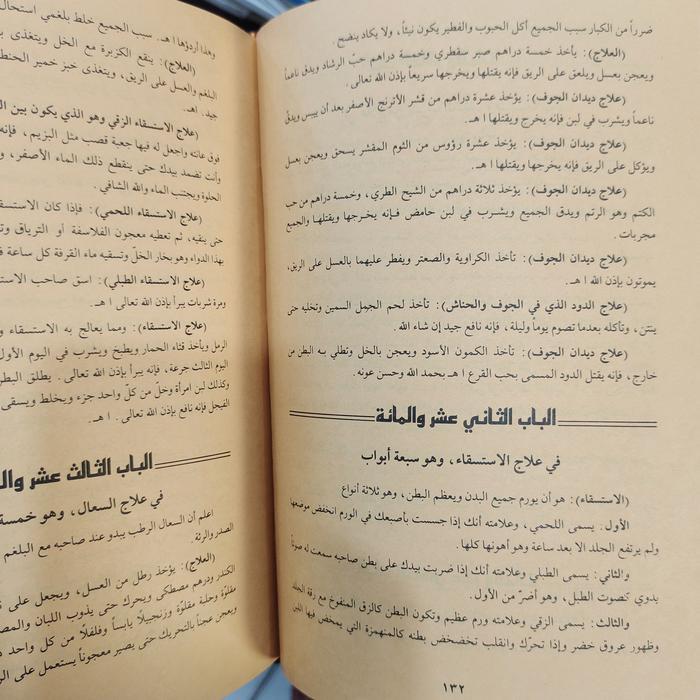 ضرراً من الكبار سبب الجميع أكل الحبوب والفطير يكون نيئاً، ولا يكاد ينضج.
(العلاج): يأخذ خمسة دراهم صبر سقطري وخمسة دراهم حبّ الرشاد ويدق ناعماً
ويعجن بعسل ويلعق على الريق فإنه يقتلها ويخرجها سريعاً بإذن الله تعالى.
(علاج ديدان الجوف): يؤخذ عشرة دراهم من قشر الأترنج الأصفر بعد أن ييبس ويدق
ناعماً ويشرب في لبن فإنه يخرج ويقتلها ا هـ.
(علاج ديدان الجوف): يؤخذ عشرة رؤوس من الثوم المقشر يسحق ويعجن بعسل
ويؤكل على الريق فإنه يخرجها ويقتلها ا هـ.
(علاج ديدان الجوف): يؤخذ ثلاثة دراهم من الشيح الطري، وخمسة دراهم من حب
الكتم وهو الرتم ويدق الجميع ويشرب في لبن حامض فإنه يخرجها ويقتلها والجميع
مجربات.
(علاج ديدان الجوف): تأخذ الكراوية والصعتر ويفطر عليهما بالعسل على الريق،
يموتون بإذن الله ا هـ.
(علاج الدود الذي في الجوف والحناش): تأخذ لحم الجمل السمين وتخليه حتى
ينتن، وتأكله بعدما تصوم يوماً وليلة، فإنه نافع جيد إن شاء الله.
(علاج ديدان الجوف): تأخذ الكمون الأسود ويعجن بالخل وتطلي به البطن من
خارج، فإنه يقتل الدود المسمى بحب القرع ا هـ بحمد الله وحسن عونه.
الباب الثاني عشر والمائة
في علاج الاستسقاء، وهو سبعة أبواب
(الاستسقاء): هو أن يورم جميع البدن ويعظم البطن، وهو ثلاثة أنواع
الأول: يسمى اللحمي، وعلامته أنك إذا جسست بأصبعك في الورم انخفض موضعها
ولم يرتفع الجلد الا بعد ساعة وهو أهونها كلها.
والثاني: يسمى الطبلي وعلامته أنك إذا ضربت بيدك على بطن صاحبه سمعت له صوتاً
يدوي كصوت الطبل، وهو أضرّ من الأول.
والثالث: يسمى الزقي وعلامته ورم عظيم وتكون البطن كالزق المنفوخ مع رقة الجلد
وظهور عروق خضر وإذا تحرّك وانقلب تخضخض بطنه كالمنهمزة التي يمخض فيها اللبن
١٣٢
وهذا أردؤها ا هـ. سبب الجميع خلط بلغمي استحال
(العلاج): ينقع الكزبرة مع الخل ويتغذى
البلغم والعسل على الريق، ويتغذى خبز خمير الحنط
جيد. اهـ.
(علاج الاستسقاء الزقي وهو الذي يكون بين ال
فوق عانته واجعل له فيها جعبة قصب مثل البزيم، فإنه
وأنت تضمد بيدك حتى ينقطع ذلك الماء الأصفر، و
الحلوة ويجتنب الماء والله الشافي.
(علاج الاستسقاء اللحمي): فإذا كان الاستسقا
حتى ينقيه، ثم تعطيه معجون الفلاسفة أو الترياق وت
بهذا الدواء وهو بخار الخلّ وتسقيه ماء القرفة كل ساعة ف
(علاج الاستسقاء الطبلي): اسق صاحب الاستس
ومرة شربات يبرأ بإذن الله تعالى ا هـ.
(علاج الاستسقاء): ومما يعالج به الاستسقاء و
الرمل ويأخذ قثاء الحمار ويطبخ ويشرب في اليوم الأول
اليوم الثالث جرعة، فإنه يبرأ بإذن الله تعالى. يطلق البط
وكذلك لبن امرأة وخلّ من كلّ واحد جزء ويخلط ويسقى
الفجل فإنه نافع بإذن الله تعالى. ا هـ.
الباب الثالث عشر وال
في علاج السعال، وهو خمسة
اعلم أن السعال الرطب يبدو عند صاحبه مع البلغم
الصدر والرئة.
(العلاج): يؤخذ رطل من العسل، ويجعل على
الكندر ودرهم مصطكى ويحرك حتى يذوب اللبان والمص
مقلوّة وحلبة مقلوّة وزنجبيلاً يابساً وفلفلاً من كل واحد
ويعجن عجناً بالتحريك حتى يصير معجوناً يستعمل على الر